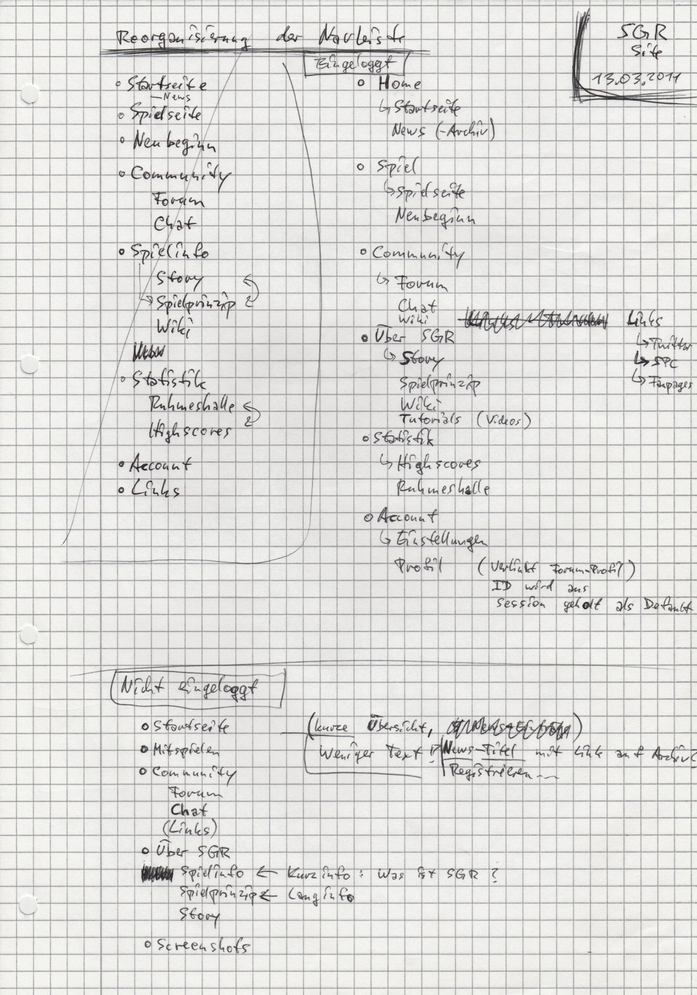 Reorganisierung der Navleiste
SGR
Site
13.03.2011
• Startseite
— News
• Spielseite
• Neubeginn
• Community
Forum
Chat
• Spielinfo
Story
↳ Spielprinzip
Wiki
• Statistik
Ruhmeshalle
Highscores
• Account
• Links
Eingeloggt
o Home
↳ Startseite
News (-Archiv)
o Spiel
↳ Spielseite
Neubeginn
o Community
↳ Forum
Chat
Wiki
o Über SGR
↳ Story
Spielprinzip
Wiki
Tutorials (Videos)
o Statistik
↳ Highscores
Ruhmeshalle
o Account
↳ Einstellungen
Profil (Verlinkt Forum-Profil)
ID wird aus
session geholt als Default
Links
↳ Twitter
↳ SPC
↳ Fanpages
Nicht eingeloggt
o Startseite (kurze Übersicht, )
Weniger Text! News-Titel mit Link auf Archiv?
Registrieren...
o Mitspielen
o Community
Forum
Chat
(Links)
o Über SGR
Spielinfo ← Kurzinfo: Was ist SGR?
Spielprinzip ← Langinfo
Story
o Screenshots